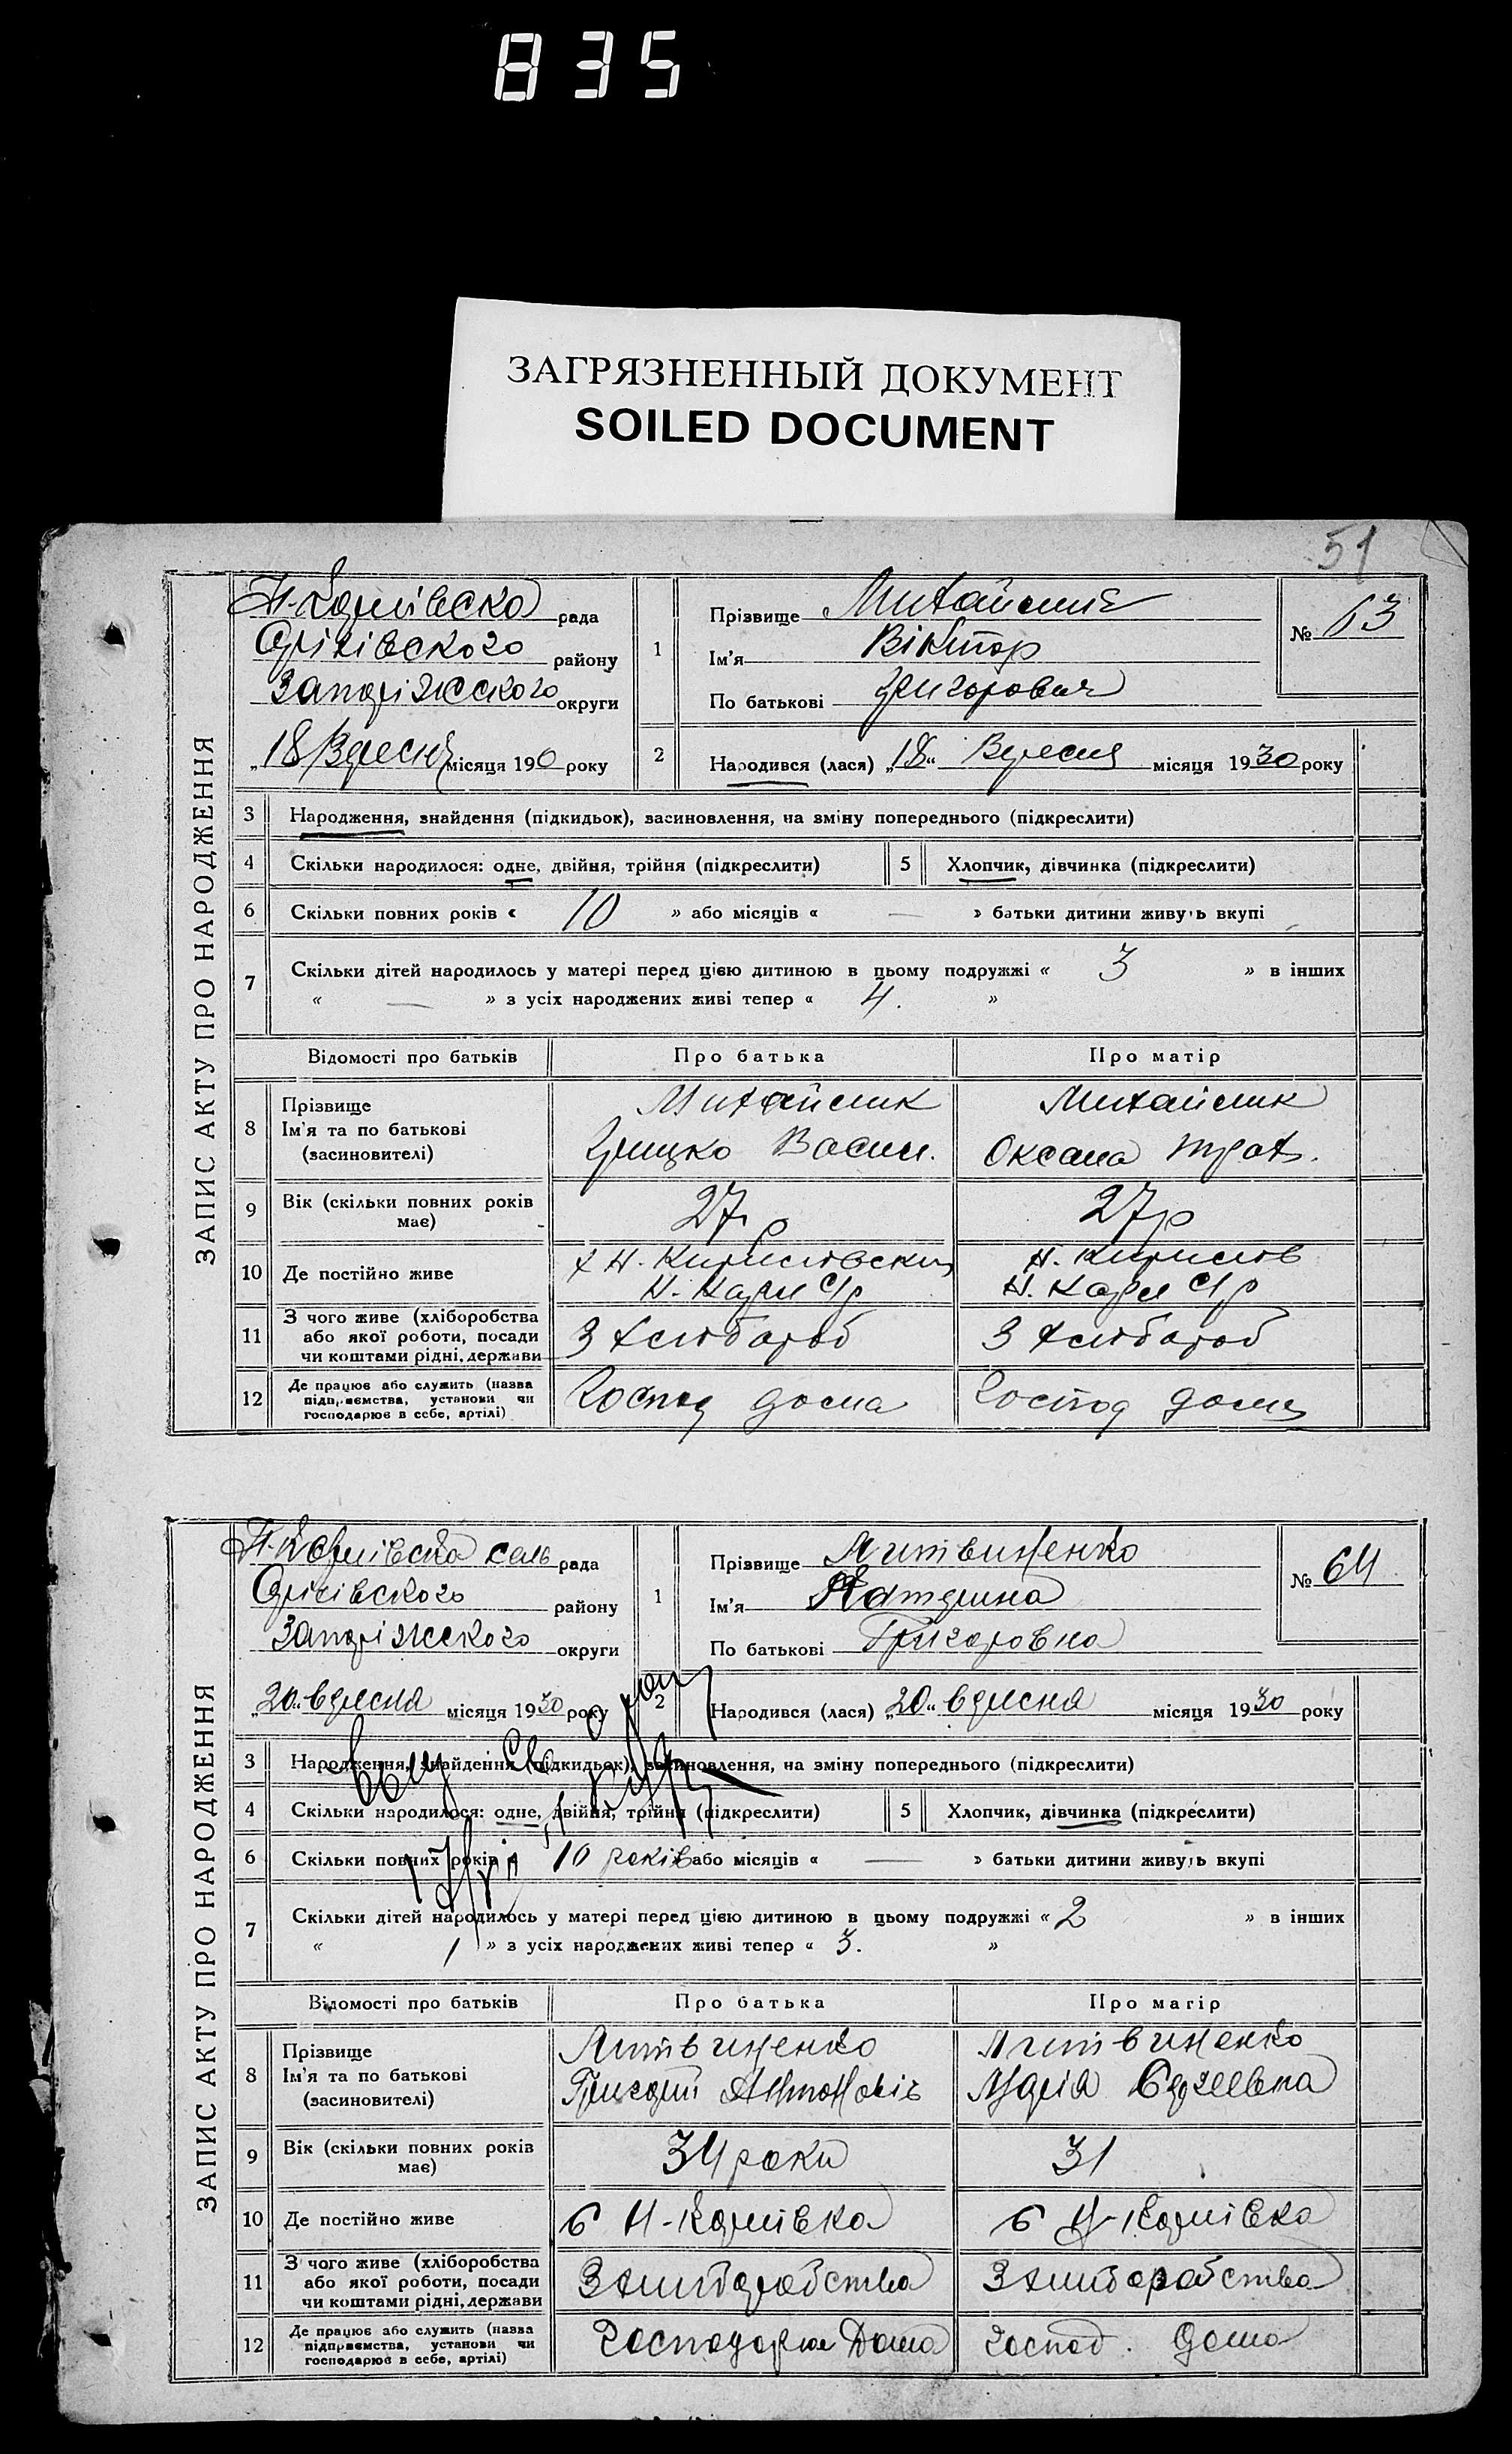 835
ЗАГРЯЗНЕННЫЙ ДОКУМЕНТ
SOILED DOCUMENT
51
ЗАПИС АКТУ ПРО НАРОДЖЕННЯ
Н-Карлівска рада
Оріхівского району
Запоріжского округи
„18 Вересня місяця 1930 року
1
Прізвище Михайлик
Ім'я Віктор
По батькові Григорович
№ 63
2 Народився (лася) „18“ Вересня місяця 1930 року
3 Народження, знайдення (підкидьок), засиновлення, на зміну попереднього (підкреслити)
4 Скільки народилося: одне, двійня, трійня (підкреслити) 5 Хлопчик, дівчинка (підкреслити)
6 Скільки повних років « 10 » або місяців « — » батьки дитини живуть вкупі
7 Скільки дітей народилось у матері перед цією дитиною в цьому подружжі « 3 » в інших
« — » з усіх народжених живі тепер « 4. »
Відомості про батьків Про батька Про матір
8 Прізвище
Ім'я та по батькові
(засиновителі)
Михайлик
Грицко Васил.
Михайлик
Оксана
9 Вік (скільки повних років має)
27 р
27 р
10 Де постійно живе
х Н.
Н. Карл С/р
Н.
Н. Карл С/р
11 З чого живе (хліборобства
або якої роботи, посади
чи коштами рідні, держави
З хлібороб
З хлібороб
12 Де працює або служить (назва
підприємства, установи чи
господарює в себе, артілі)
Господ дома
Господ дома
ЗАПИС АКТУ ПРО НАРОДЖЕННЯ
Н-Карлівска сель рада
Оріхівского району
Запоріжского округи
„20“ вересня місяця 1930 року
1
Прізвище Литвиненко
Ім'я Катерина
По батькові Григоровна
№ 64
2 Народився (лася) „20“ вересня місяця 1930 року
3 Народження, знайдення (підкидьок), засиновлення, на зміну попереднього (підкреслити)
4 Скільки народилося: одне, двійня, трійня (підкреслити) 5 Хлопчик, дівчинка (підкреслити)
6 Скільки повних років « 10 років або місяців « — » батьки дитини живуть вкупі
7 Скільки дітей народилось у матері перед цією дитиною в цьому подружжі « 2 » в інших
« 1 » з усіх народжених живі тепер « 3. »
Відомості про батьків Про батька Про матір
8 Прізвище
Ім'я та по батькові
(засиновителі)
Литвиненко
Григорій Антонович
Литвиненко
Марія
9 Вік (скільки повних років має)
34 роки
31
10 Де постійно живе
в Н-Карлівка
в Н-Карлівка
11 З чого живе (хліборобства
або якої роботи, посади
чи коштами рідні, держави
З хліборобства
З хліборобства
12 Де працює або служить (назва
підприємства, установи чи
господарює в себе, артілі)
Господарює Дома
господ. Дома